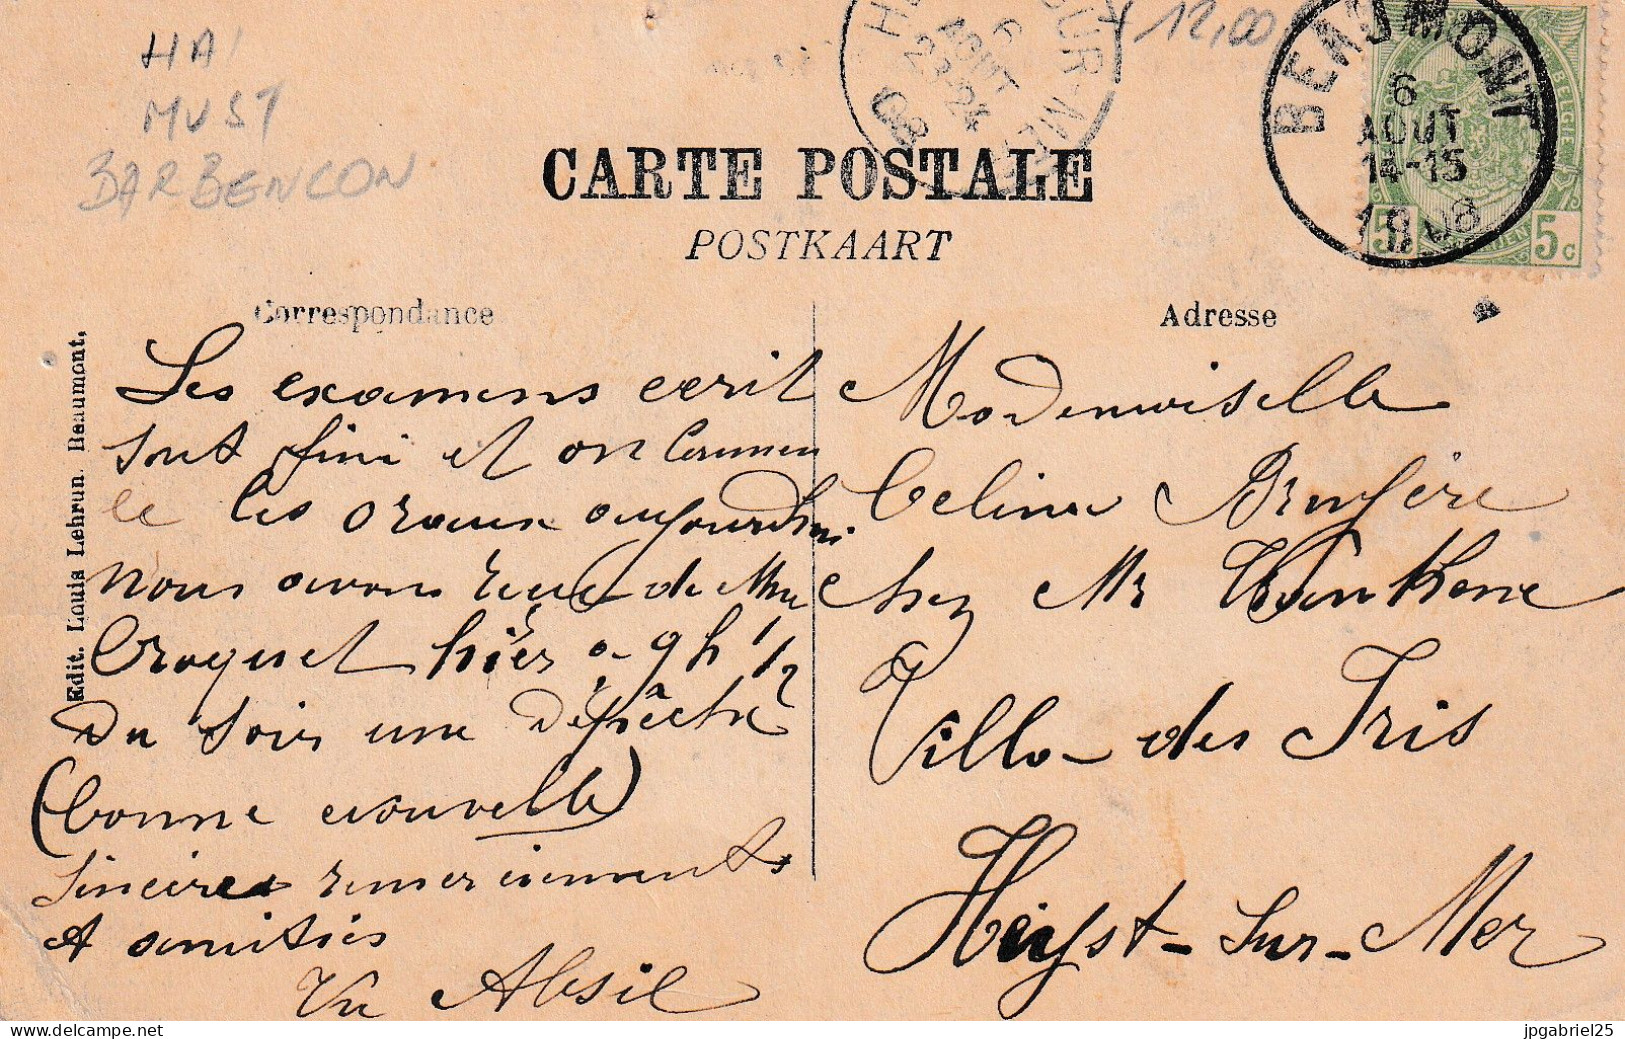 HAI
MUST
BARBENCON
12,00
BEAUMONT
6
AOUT
14-15
1908
6
AOUT
08
BELGIE
5 5c
CARTE POSTALE
POSTKAART
Correspondance
Adresse
Edit. Louis Lebrun. Beaumont.
Les examens ecrit
sont fini et on commen
ce les oraux aujourdhui
nous avons reçue de Mme
Croquet hièr à 9 h 1/2
du soir une dépêche
(bonne nouvelle)
Sincères remerciements
et amitiés
Absil
Mademoiselle
Celina Bruyère
chez Mr
Villa des Iris
Heyst-sur-Mer
jpgabriel25